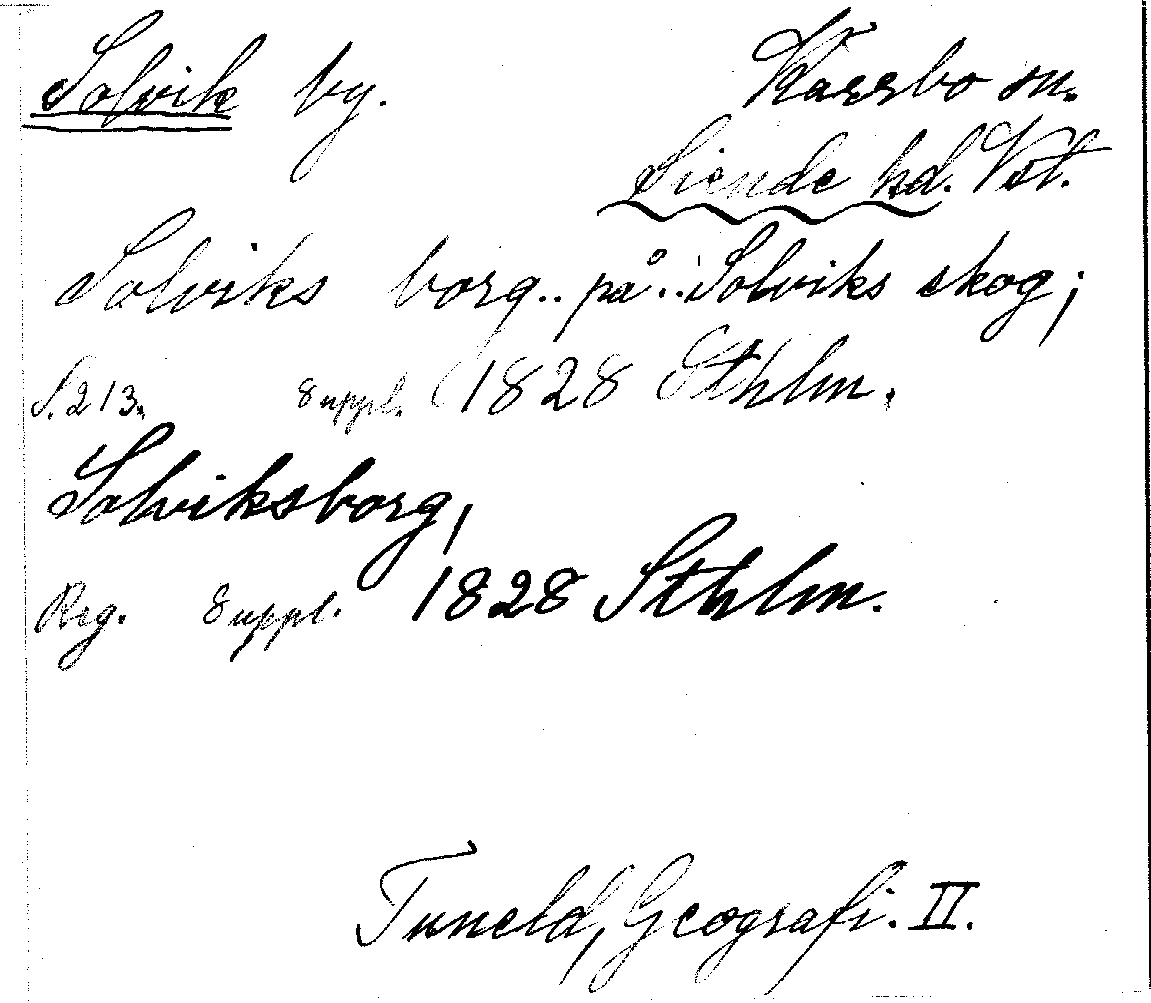 Solvik by.
Kärrbo sn.
Siende hd. Vstl.
Solviks borg.. på.. Solviks skog;
S. 213. Suppl. 1828 Sthlm.
Solviksborg,
Reg. Suppl. 1828 Sthlm.
Tuneld, Geografi. II.